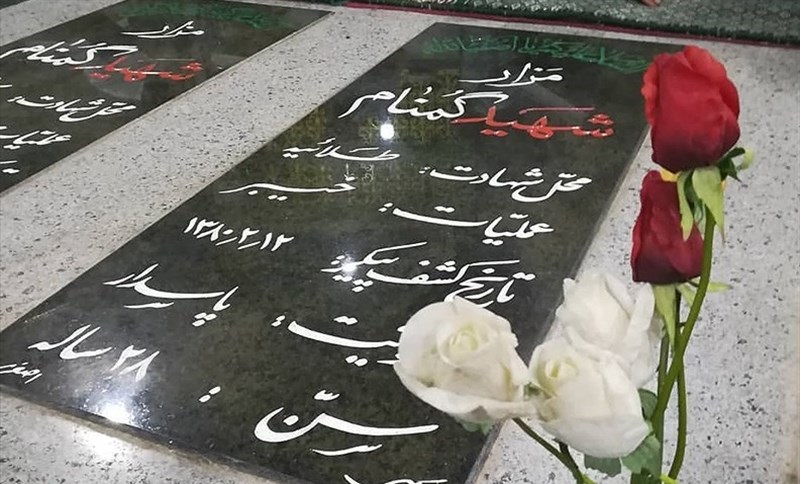 مزار
شهید گمنام
محلّ شهادت: طلائیه
عملیّات: خیبر
تاریخ کشف پیکر: ۱۳۸۰٫۲٫۱۲
یت: پاسدار
سنّ: ۲۸ ساله
مزار
شهید گمنام
محلّ شهادت:
عملیّات